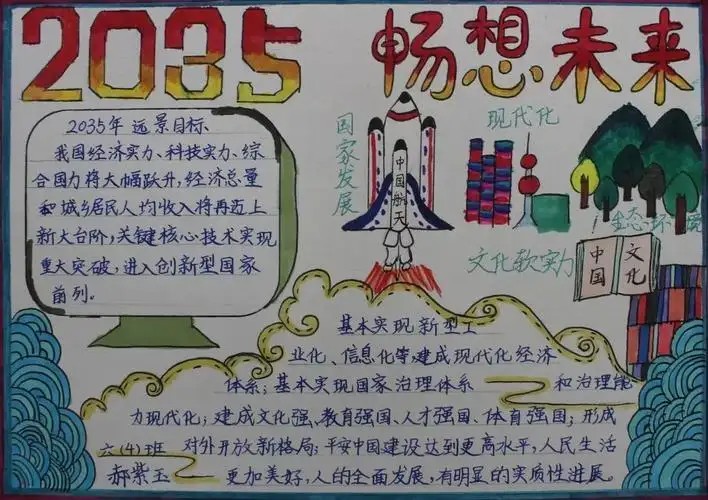 2035 畅想未来
2035年 远景目标
我国经济实力、科技实力、综
合国力将大幅跃升,经济总量
和城乡居民人均收入将再迈上
新大台阶;关键核心技术实现
重大突破,进入创新型国家
前列。
国家发展
中国航天
现代化
生态环境
文化软实力
中国
文化
基本实现新型工
业化、信息化等,建成现代化经济
体系;基本实现国家治理体系 和治理能
力现代化;建成文化强、教育强国、人才强国、体育强国;形成
对外开放新格局;平安中国建设达到更高水平,人民生活
更加美好,人的全面发展,有明显的实质性进展。
六(4)班
郝紫玉